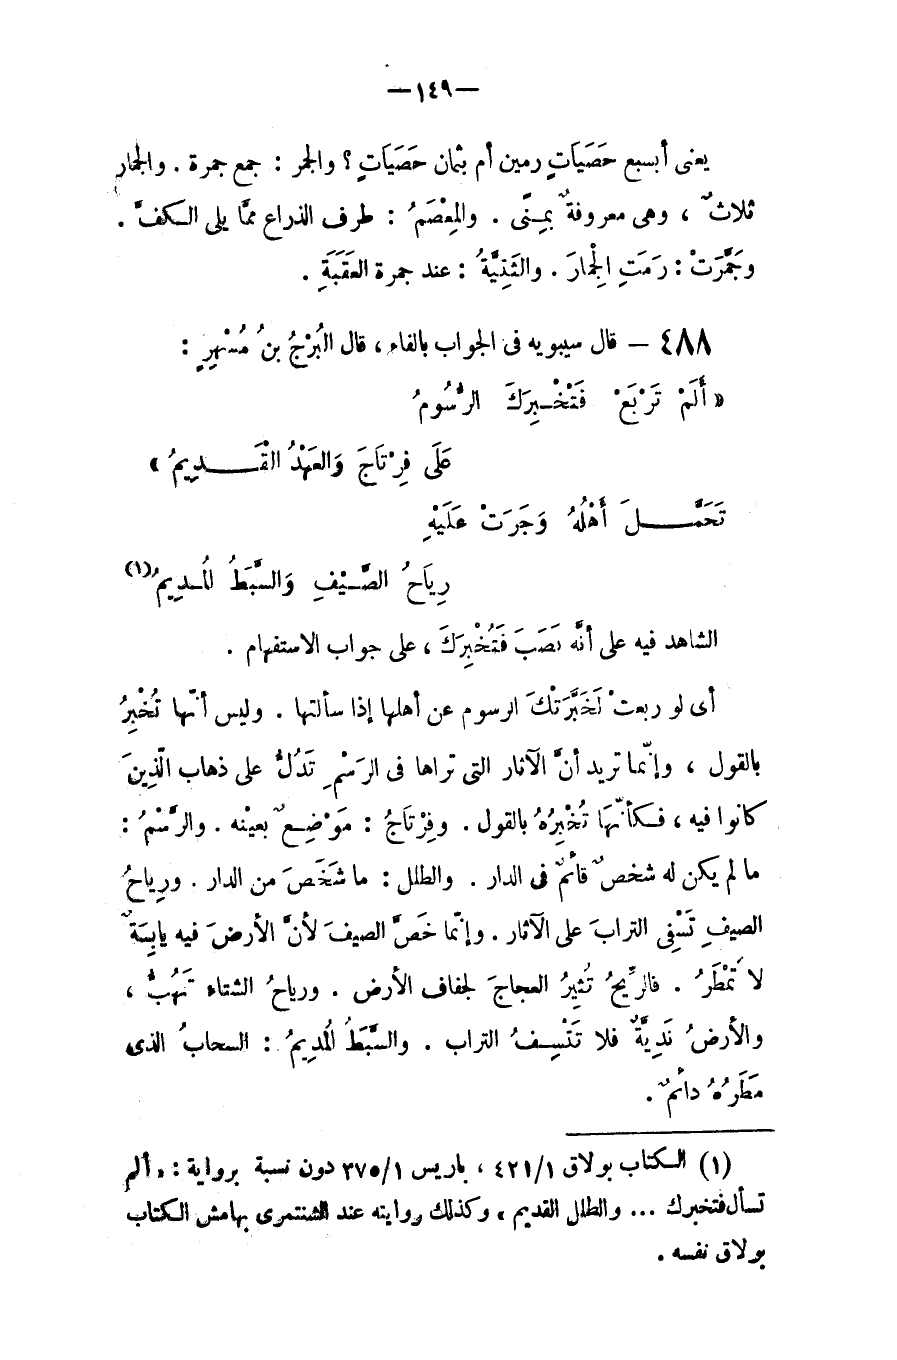 —١٤٩—
يعنى أبسبع حَصَيَاتٍ رمين أم بثمان حَصَيَاتٍ ؟ والجمر : جمع جمرة . والجمار
ثلاثٌ ، وهى معروفةٌ بِمِنًى . والمِعْصَمُ : طرف الذراع ممَّا يلى الكفَّ .
وجَمَّرَتْ : رَمَتِ الجِمَارَ . والثَنِيَّةُ : عند جمرة العَقَبَةِ .
٤٨٨ – قال سيبويه فى الجواب بالفاء ، قال البُرْجُ بنُ مُسْهِرٍ :
« أَلَمْ تَرْبَعْ فَتُخْبِرَكَ الرُّسُومُ
عَلَى فِرْتَاجَ وَالعَهْدُ القَدِيمُ »
تَحَمَّلَ أَهْلُهُ وَجَرَتْ عَلَيْهِ
رِيَاحُ الصَّيْفِ وَالسَّبَطُ المُدِيمُ(١)
الشاهد فيه على أنَّه نَصَبَ فَتُخْبِرَكَ ، على جواب الاستفهام .
أى لو ربعتْ لَخَبَّرَتْكَ الرسوم عن أهلها إذا سألتها . وليس أنّها تُخْبِرُ
بالقول ، وإنّما تريد أنَّ الآثار التى تراها فى الرَسْمِ تَدُلُّ على ذهاب الّذِينَ
كانوا فيه ، فكأنّهَا تُخْبِرُهُ بالقول . وفِرْتَاجُ : مَوْضِعٌ بعيْنه . والرَّسْمُ :
ما لم يكن له شخصٌ قائمٌ فى الدار . والطلل : ما شَخَصَ من الدار . ورِياحُ
الصيفِ تَسْفِى الترابَ على الآثار . وإنّما خَصَّ الصيفَ لأنَّ الأرضَ فيه يابِسَةٌ
لا تُمْطَرُ . فالرِّيحُ تُثِيرُ العجاجَ لجفاف الأرض . ورياحُ الشتاء تَهُبُّ ،
والأرضُ نَدِيَّةٌ فلا تَنْسِفُ التراب . والسَّبَطُ المُدِيمُ : السحابُ الذى
مَطَرُهُ دائمٌ .
(١) الكتاب بولاق ٤٢١/١ ، باريس ٣٧٥/١ دون نسبة برواية : « ألم
تسأل فتخبرك ... والطلل القديم » وكذلك روايته عند الشنتمرى بهامش الكتاب
بولاق نفسه .